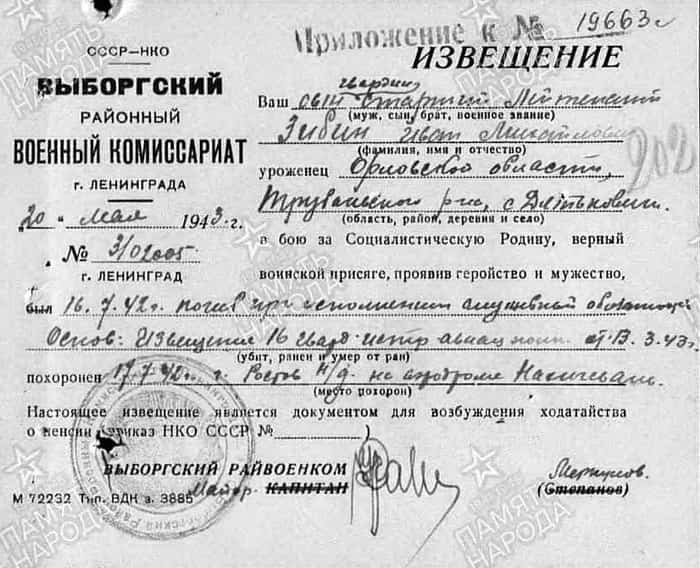 Приложение к № 19663с
СССР–НКО
ВЫБОРГСКИЙ
РАЙОННЫЙ
ВОЕННЫЙ КОМИССАРИАТ
г. ЛЕНИНГРАДА
„20" мая 1943 г.
№ 3/02005
г. ЛЕНИНГРАД
ИЗВЕЩЕНИЕ
гвардии
Ваш сын Старший Лейтенант
(муж, сын, брат, военное звание)
Зибин Иван Михайлович
(фамилия, имя и отчество)
202
уроженец Орловской области,
Трубчевского р-на, с
(область, район, деревня и село)
в бою за Социалистическую Родину, верный
воинской присяге, проявив геройство и мужество,
был 16.7.42г. погиб при исполнении служебных
Основ: Извещение 16 гвард. истр авиац полк. от 13.3.43г.
(убит, ранен и умер от ран)
похоронен 17.7.42г. г. Ростов н/д. на аэродроме Нахичевань.
(место похорон)
Настоящее извещение является документом для возбуждения ходатайства
о пенсии (приказ НКО СССР № )
ВЫБОРГСКИЙ РАЙВОЕНКОМ
Майор КАПИТАН
Меркулов.
(Степанов)
М 72232 Тип. ВДК з. 3885
ПАМЯТЬ
НАРОДА